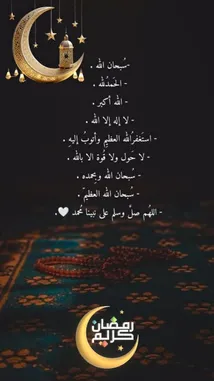 -سُبحان الله .
- الحَمدُلله .
- الله أكبر .
- لا إله إلا الله .
- استَغفرُالله العظيمِ وأتوبُ إليهِ .
- لا حَول ولا قُوة الا بالله .
- سُبحان الله وبِحمده .
- سُبحان الله العظيمَ .
- اللهُم صلْ وسلم على نبينا مُحمد 🤍.
رمضان
كريم